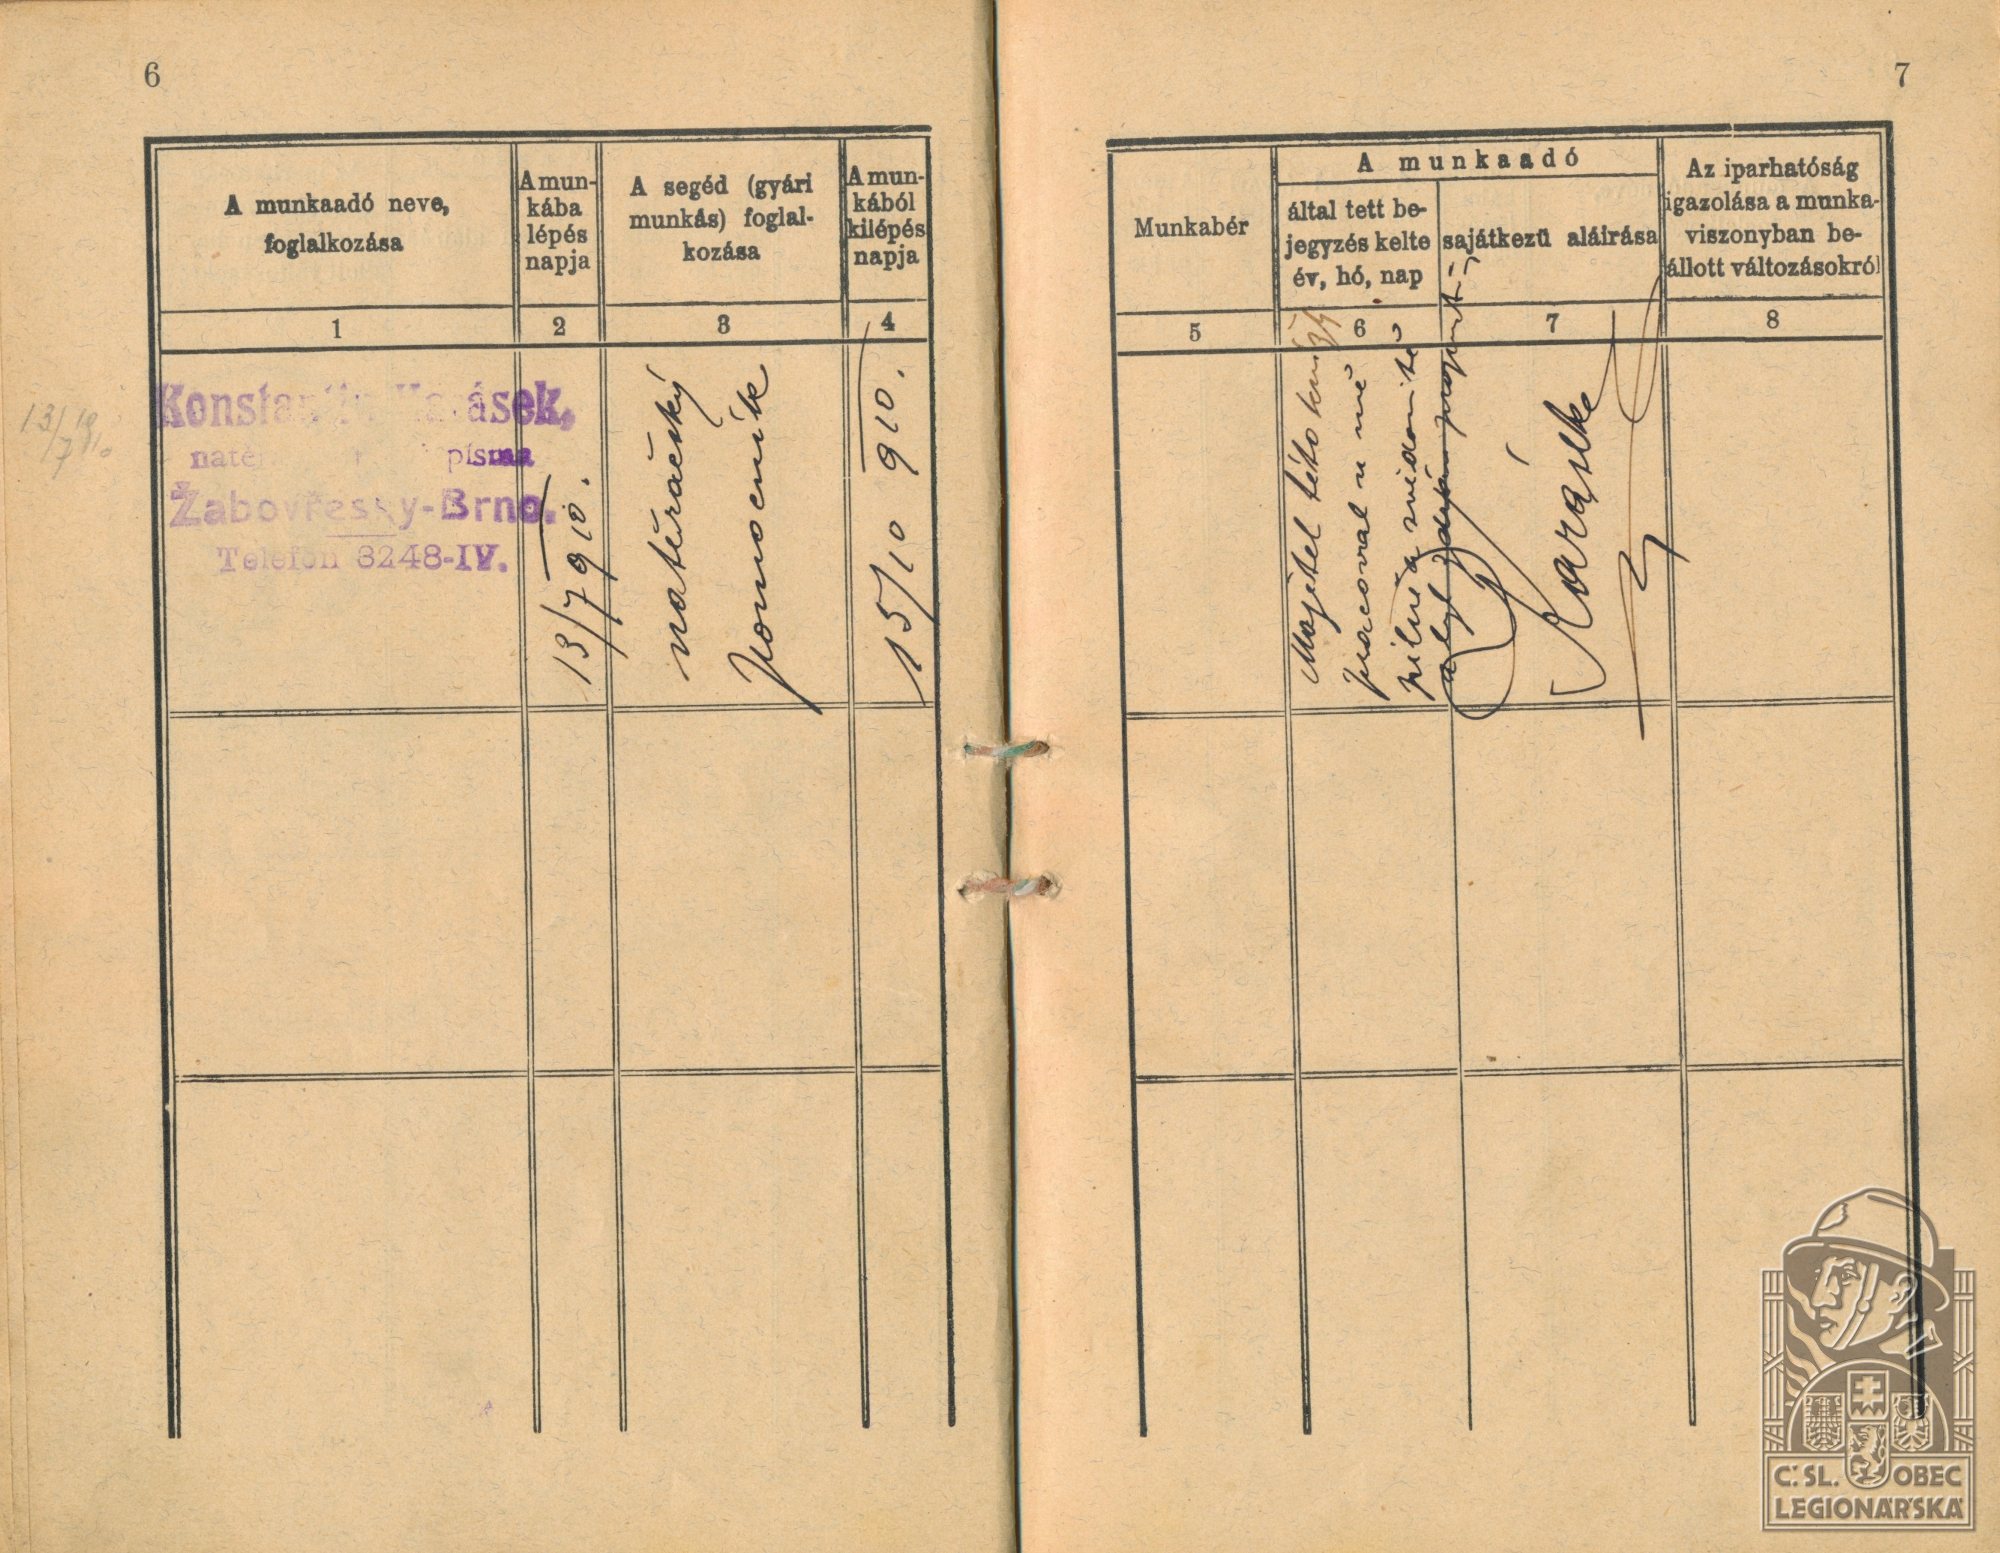 6
A munkaadó neve,
foglalkozása
A mun-
kába
lépés
napja
A segéd (gyári
munkás) foglal-
kozása
A mun-
kából
kilépés
napja
1
2
3
4
13/7 910
Konstantin Karásek,
písma
Žabovřesky-Brno.
Telefon 3248-IV.
13/7 910.
natěračský
pomocník
15/10 910.
7
Munkabér
A munkaadó
által tett be-
jegyzés kelte
év, hó, nap
sajátkezü aláirása
Az iparhatóság
igazolása a munka-
viszonyban be-
állott változásokról
5
6
7
8
Majitel této knížky
pracoval u mě
pilně a svědomitě
a byl
Karásek
Č.SL. OBEC
LEGIONÁŘSKÁ